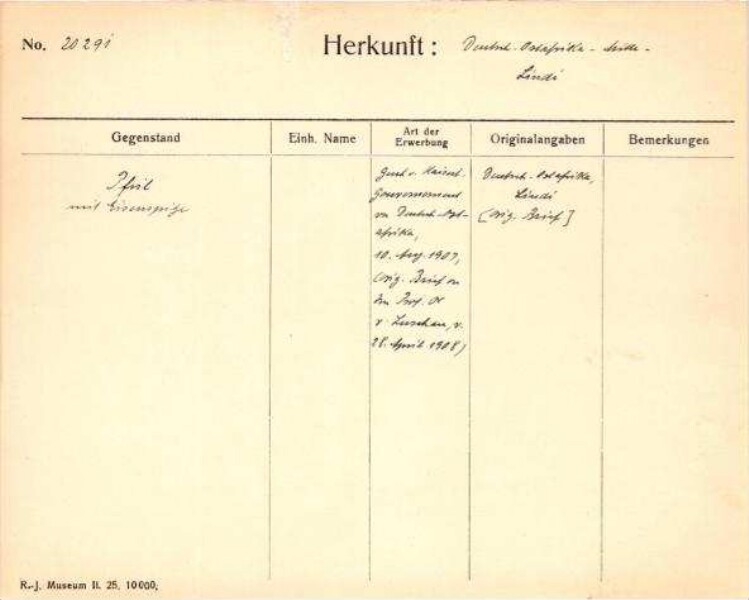 No. 20291 Herkunft: Deutsch-Ostafrika -
Lindi
Gegenstand
Einh. Name
Art der
Erwerbung
Originalangaben
Bemerkungen
Pfeil
mit Eisenspitze
Gesch. v. Kaiserl.
Gouvernement
von Deutsch-Ost-
afrika,
10. Aug. 1907,
(orig. Brief von
Prof. Dr
v. Luschan, v.
28. April 1908)
Deutsch-Ostafrika,
Lindi
[orig. Brief]
R.-J. Museum II. 25. 10000.